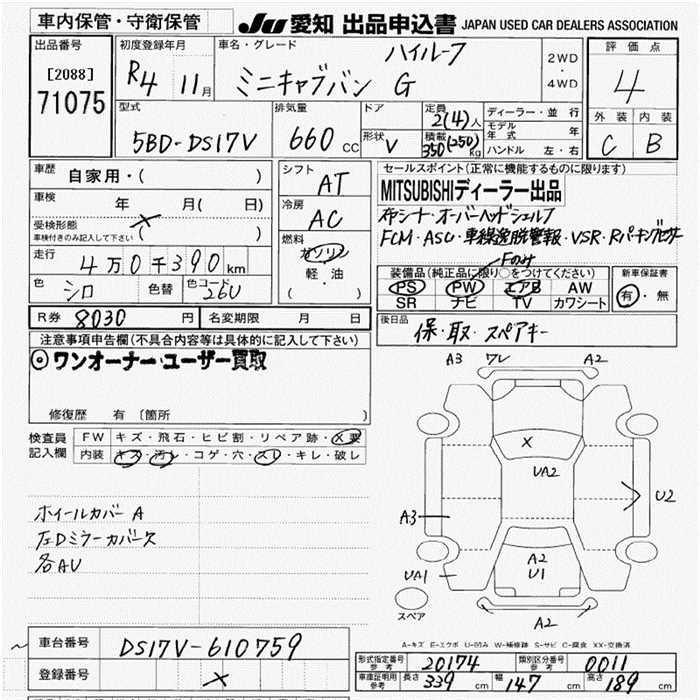 車内保管・守衛保管
JU 愛知 出品申込書 JAPAN USED CAR DEALERS ASSOCIATION
出品番号
[2088]
71075
初度登録年月
R4 11月
車名・グレード
ハイルーフ
ミニキャブバン G
2WD
・
4WD
評価点
4
外装 内装
C B
型式
5BD-DS17V
排気量
660 cc
ドア
形状 V
定員 2(4)人
積載 350(250)kg
ディーラー・並行
モデル年式 年
ハンドル 左・右
車歴 自家用・( )
車検 年 月( 日)
受検形態
車検付きのみ記入して下さい ( )
走行 4万0千390km
色 シロ 色替 色コード 26U
シフト AT
冷房 AC
燃料
ガソリン
軽・油
( ・ )
セールスポイント(正常に機能するものに限ります)
MITSUBISHIディーラー出品
両シート・オーバーヘッドシェルフ
FCM・ASC・車線逸脱警報・VSR・Rパーキングセンサー
Fのみ
装備品(純正品に限り○をつけてください)
PS PW エアB AW
SR ナビ TV カワシート
新車保証書
有・無
R券 8030 円 名変期限 月 日
後日品
保・取・スペアキー
注意事項申告欄(不具合内容等は具体的に記入して下さい)
◎ワンオーナー・ユーザー買取
修復歴 有 〔箇所 〕
検査員記入欄
FW キズ・飛石・ヒビ割・リペア跡・X要
内装 キズ・汚レ・コゲ・穴・スレ・キレ・破レ
ホイールカバー A
左Dミラーカバーズ
各AU
A3 ワレ A2
X
UA2
U2
A3
A2
U1
UA1
A2
スペア
A-キズ E-エクボ U-凹み W-補修跡 S-サビ C-腐食 XX-交換済
車台番号 DS17V-610759
登録番号 ×
型式指定番号 参考 20174 類別区分番号 参考 0011
車庫証明用 参考 長さ 339 cm 幅 147 cm 高さ 189 cm